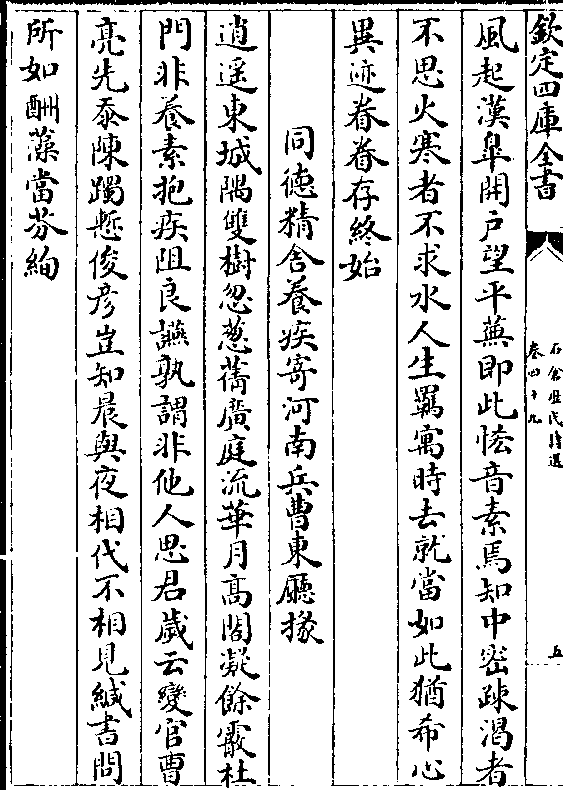 欽定四庫全書
石倉歷代詩選
卷四十九
五
風起漢臯開戶望平蕪即此恡音素焉知中密疎渴者
不思火寒者不求水人生羈寓時去就當如此猶希心
異迹眷眷存終始
同德精舍養疾寄河南兵曹東廳掾
逍遥東城隅雙樹忽葱蒨廣庭流華月高閣凝餘霰杜
門非養素抱疾阻良讌孰謂非他人思君歲云變官曹
亮先忝陳躅慙俊彦豈知晨與夜相代不相見緘書問
所如酬藻當芬絢